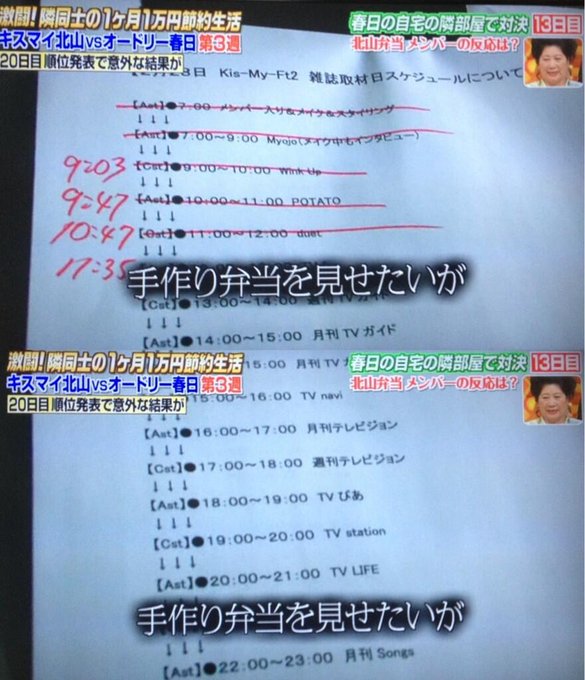 激闘!隣同士の1ヶ月1万円節約生活
キスマイ北山vsオードリー春日 第3週
20日目 順位発表で意外な結果が
春日の自宅の隣部屋で対決 13日目
北山弁当 メンバーの反応は?
日 Kis-My-Ft2 雑誌取材日スケジュールについて
【Ast】●7:00 メンバー入り&メイク&スタイリング
↓↓↓
【Ast】●7:00~9:00 Myojo(メイク中もインタビュー)
↓↓↓
9:03 【Cst】●9:00~10:00 Wink Up
↓↓↓
9:47 【Ast】●10:00~11:00 POTATO
↓↓↓
10:47 【Cst】●11:00~12:00 duet
↓↓↓
手作り弁当を見せたいが
【Cst】●13:00~14:00 週刊TVガイド
↓↓↓
【Ast】●14:00~15:00 月刊TVガイド
激闘!隣同士の1ヶ月1万円節約生活
キスマイ北山vsオードリー春日 第3週
20日目 順位発表で意外な結果が
春日の自宅の隣部屋で対決 13日目
北山弁当 メンバーの反応は?
15:00 月刊TV
15:00~16:00 TV navi
↓↓↓
【Ast】●16:00~17:00 月刊テレビジョン
↓↓↓
【Cst】●17:00~18:00 週刊テレビジョン
↓↓↓
【Ast】●18:00~19:00 TVぴあ
↓↓↓
【Cst】●19:00~20:00 TV station
↓↓↓
【Ast】●20:00~21:00 TV LIFE
↓↓↓
手作り弁当を見せたいが
↓↓↓
【Ast】●22:00~23:00 月刊 Songs